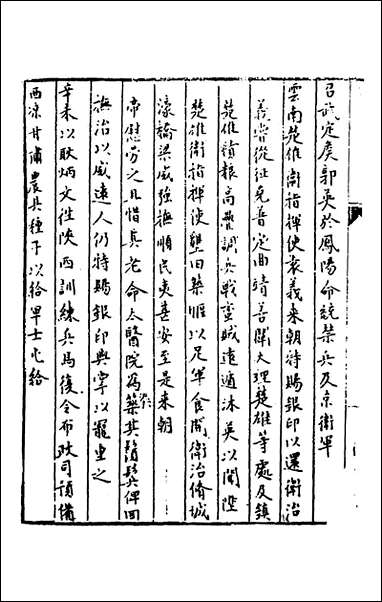 召武定侯郭英於鳳陽命統禁兵及京衛軍
雲南楚雄衛指揮使袁義來朝特賜銀印以還衛治
義嘗從征克普定曲靖善闡大理楚雄等處及鎮
楚雄積粮高壘調兵戰蠻賊遠遁沐英以聞陞
楚雄衛指揮使墾田築堰以足軍食開衛治脩城
濠橋梁威強撫順民夷甚安至是來朝
帝慰勞之且惜其老命太醫院為藥其鬚鬢俾回
撫治以威遠人仍特賜銀印與掌以寵重之
辛未以耿炳文徃陝西訓練兵馬復令布政司預備
西凉甘肅農具種子以給軍士屯給